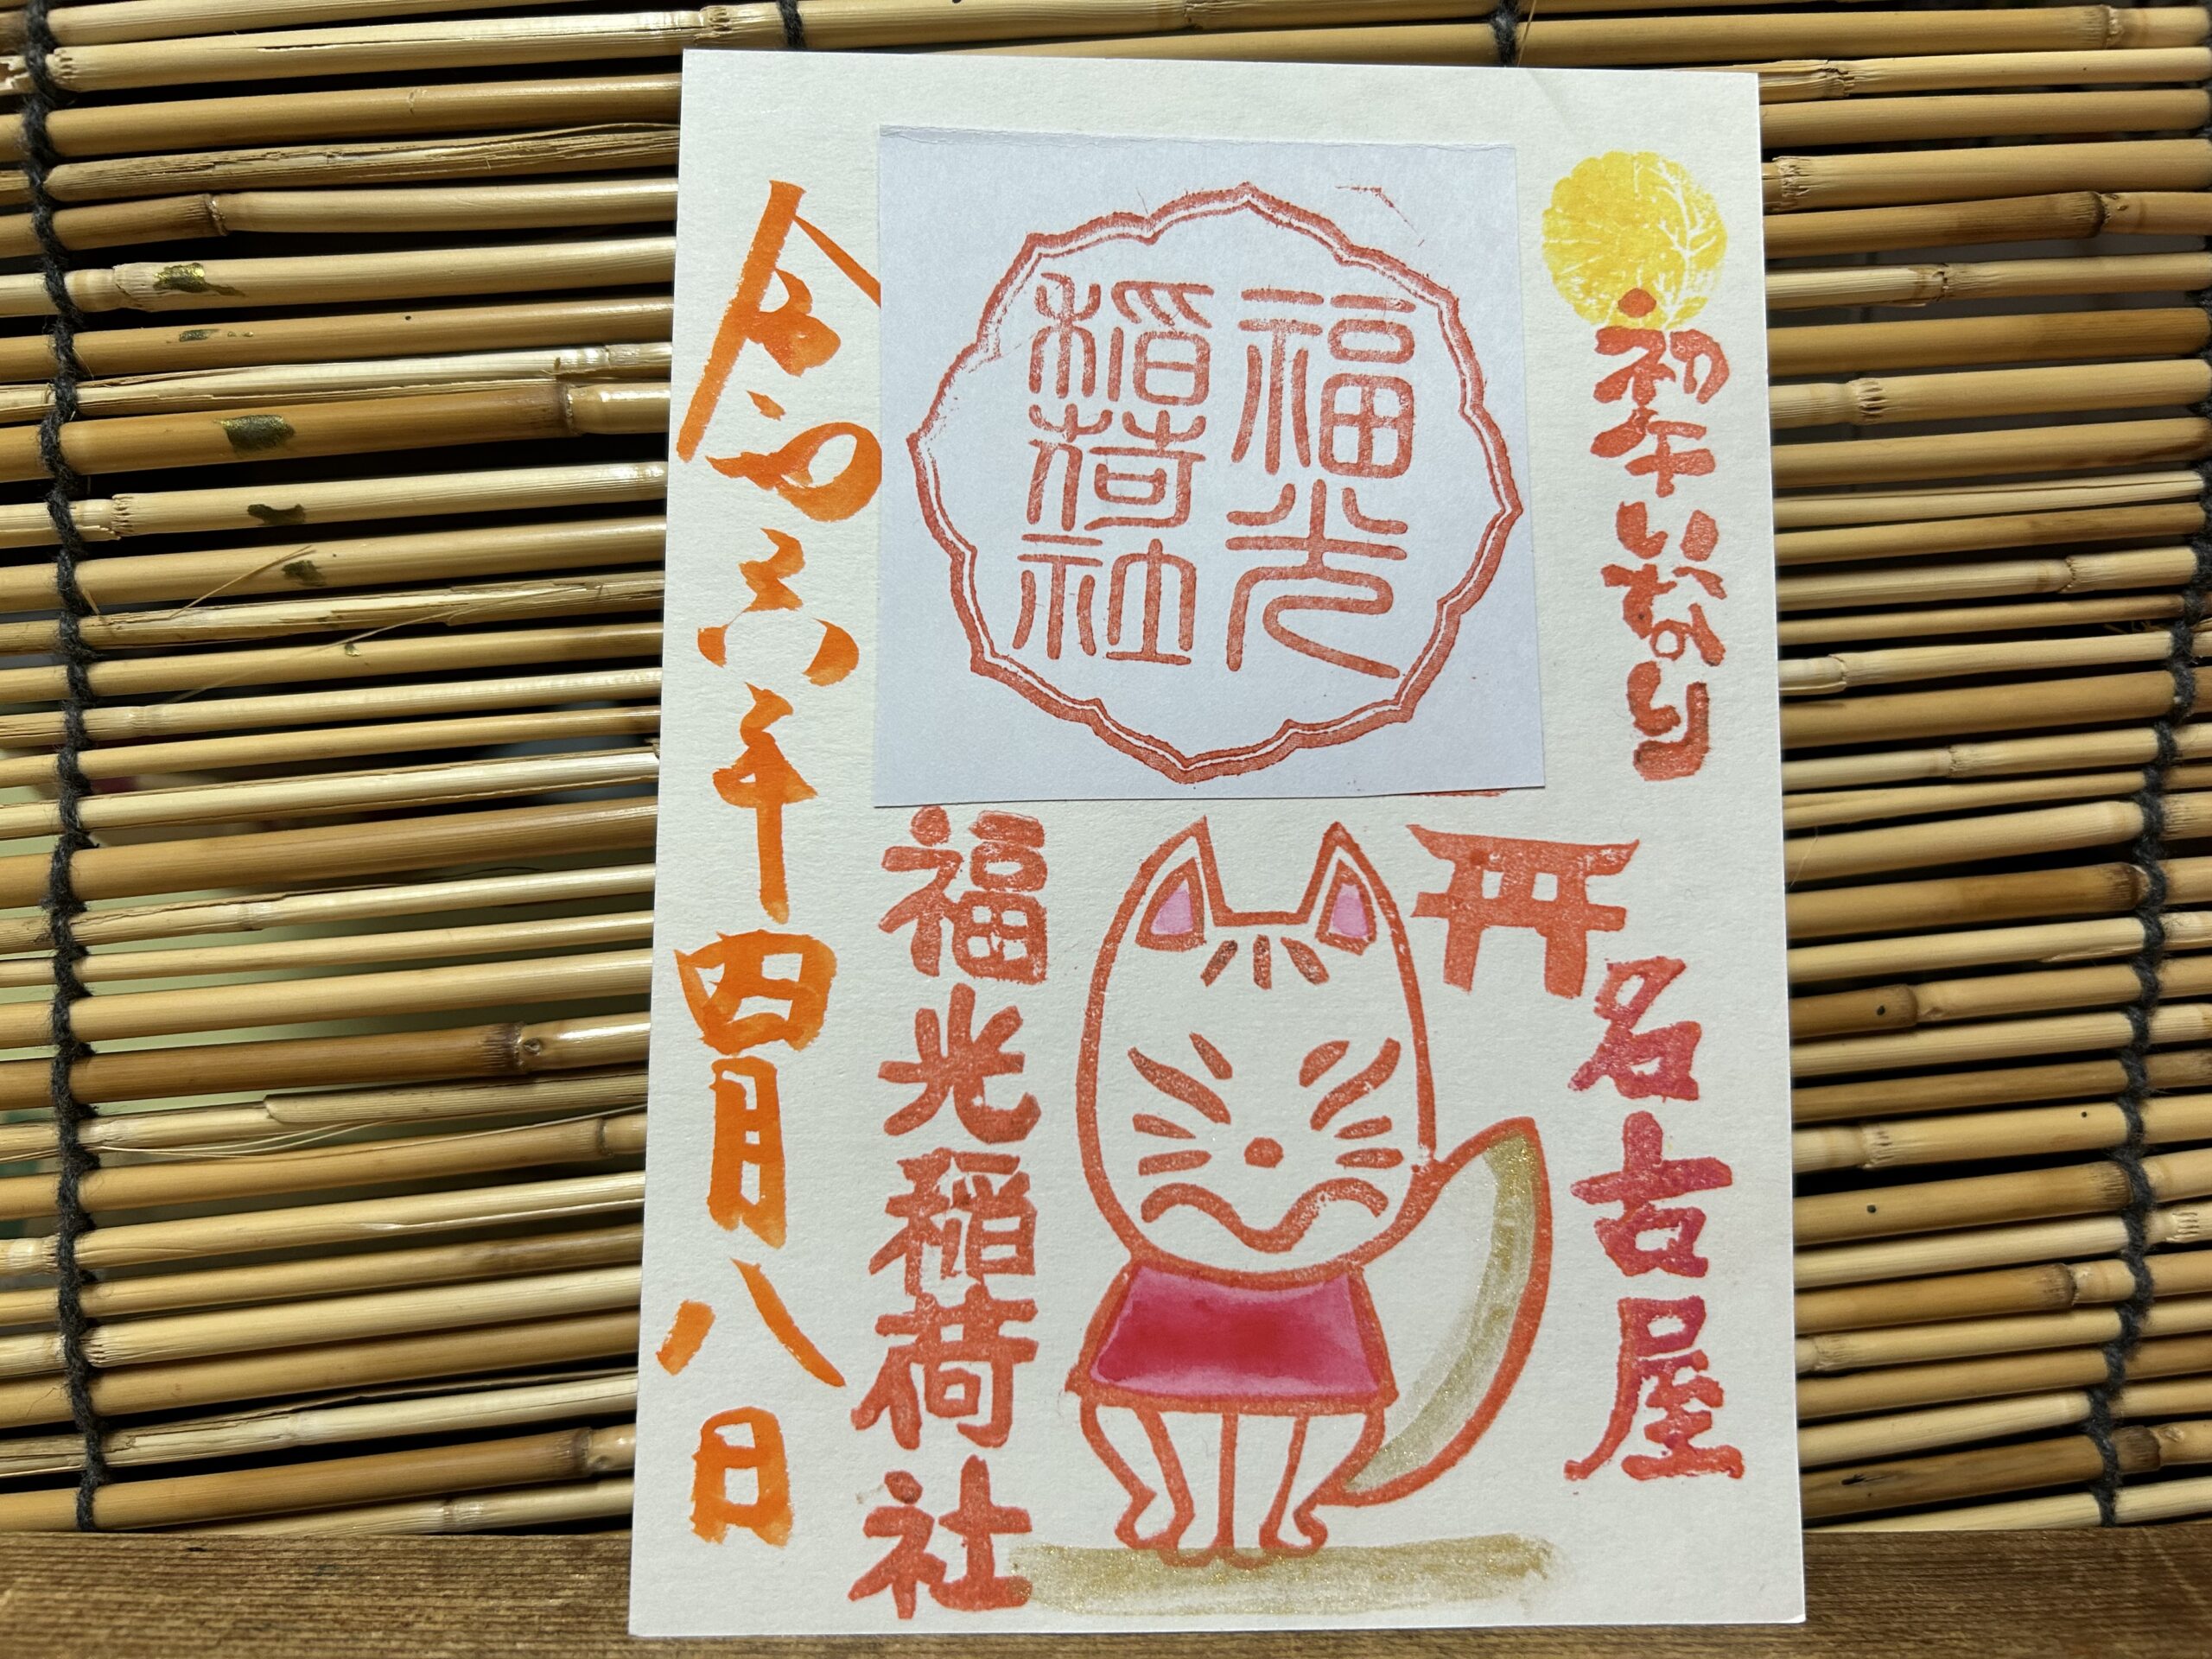 初午いなり
名古屋
福光
稲荷社
福光稲荷社
令和六年四月八日